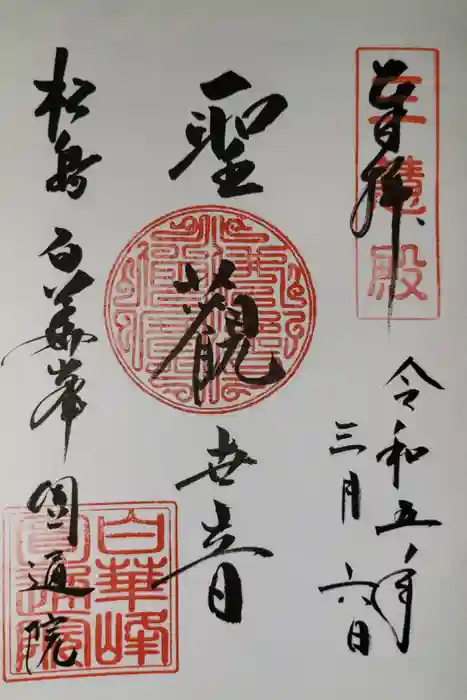 奉拝
三慧殿
令和五年
三月六日
聖観世音
松島 白華峯 圓通院
白華峰
圓通院